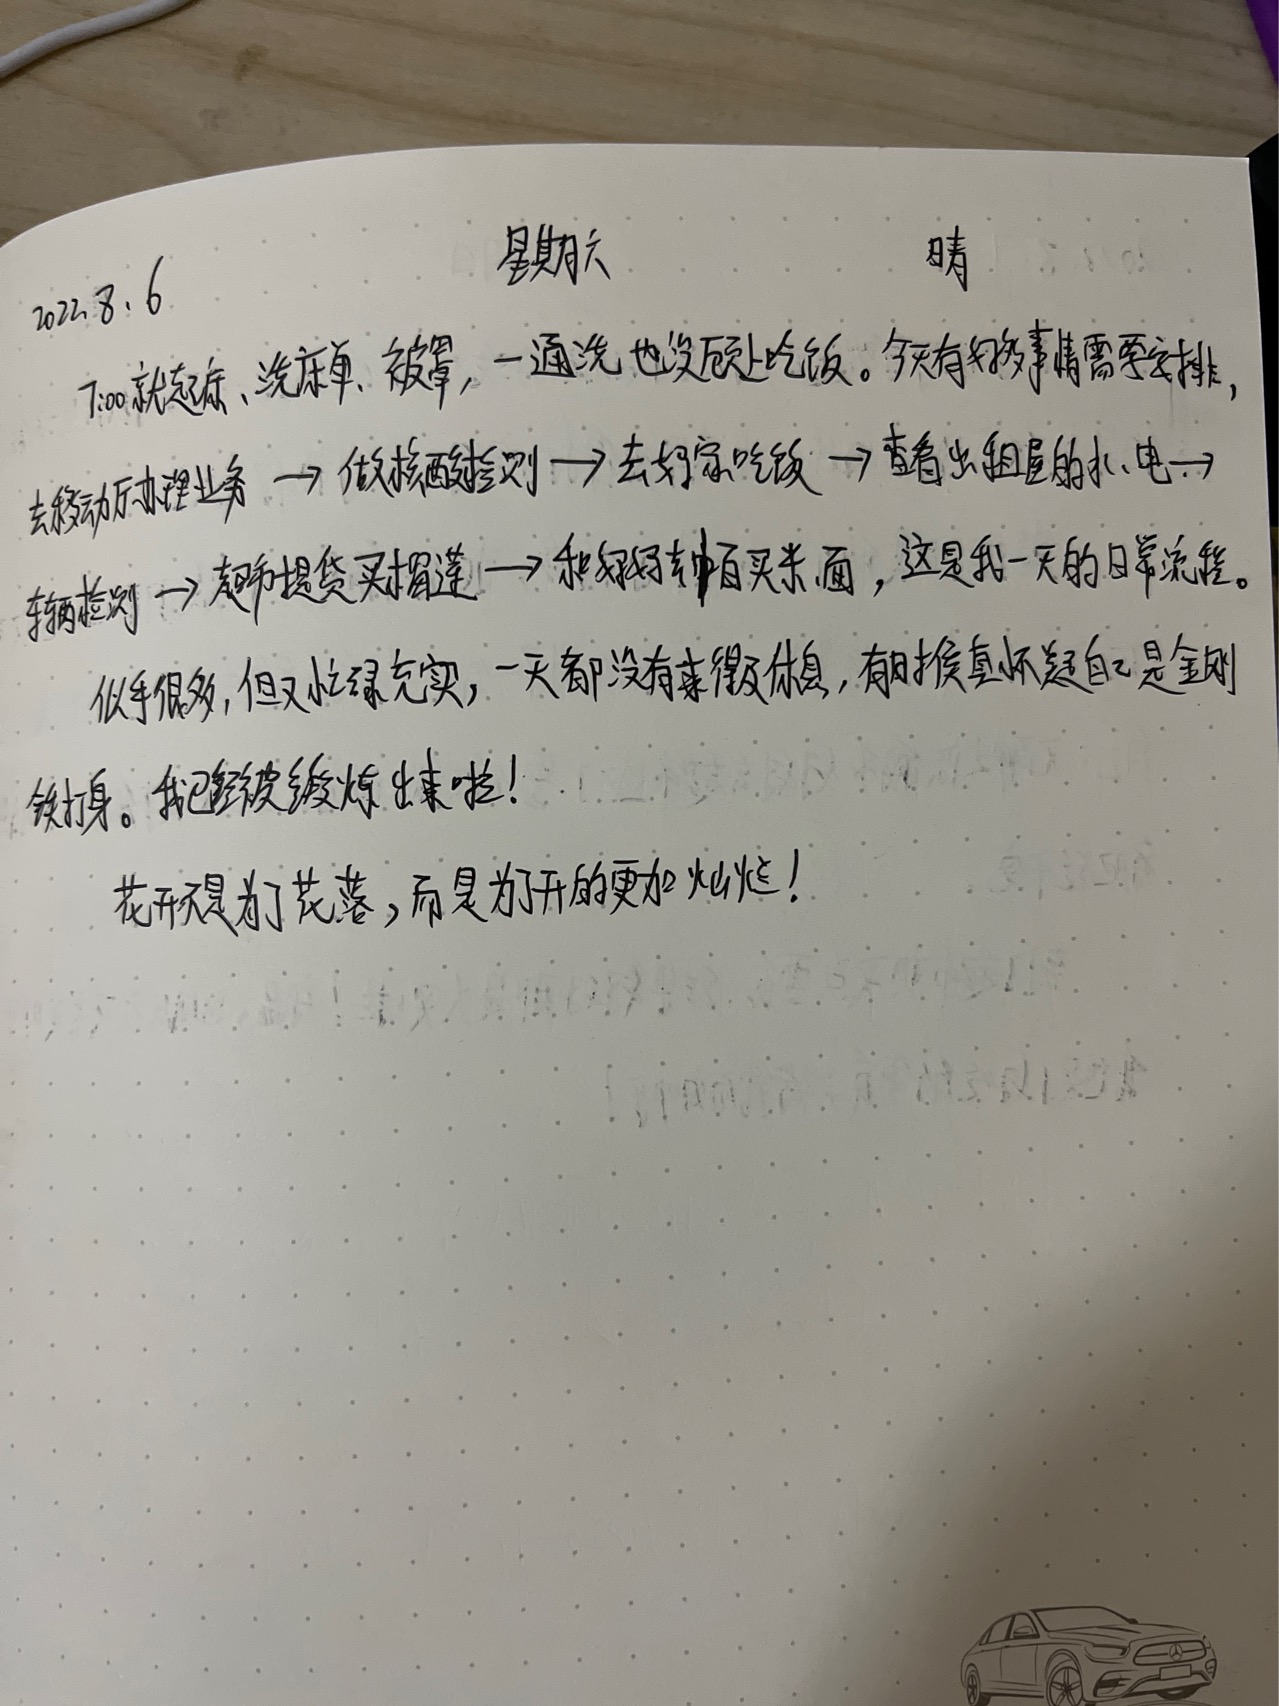 2022.8.6 星期六 晴
7:00就起床、洗床单、被罩，一通洗也没顾上吃饭。今天有好多事情需要安排，
去移动厅办理业务→做核酸检测→去好家吃饭→查看出租屋的水、电→
车辆检测→超市提货买榴莲→和妈妈去百买米、面，这是我一天的日常流程。
似乎很多，但又忙碌充实，一天都没有来得及休息，有时候真怀疑自己是金刚
铁打身。我已经被锻炼出来啦！
花开不是为了花落，而是为了开的更加灿烂！